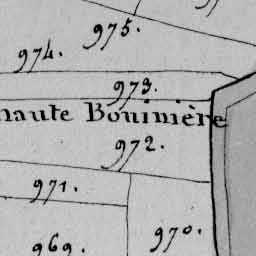 975.
974.
973.
haute Bouinière
972.
971.
970.
969.